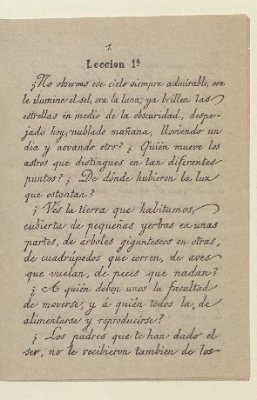 1
Leccion 1ª
¿No observas ese cielo siempre admirable, ora
le ilumine el sol, ora la luna; ya brillen las
estrellas en medio de la obscuridad, despe-
jado hoy, nublado mañana, lloviendo un
dia y nevando otro? ¿Quién mueve los
astros que distingues en tan diferentes
puntos? ¿De dónde hubieron la luz
que ostentan?
¿Vés la tierra que habitamos,
cubierta de pequeñas yerbas en unas
partes, de árboles gigantescos en otras,
de cuadrúpedos que corren, de aves
que vuelan, de peces que nadan?
¿A quién deben unos la facultad
de moverse, y á quién todos la de
alimentarse y reproducirse?
¿Los padres que te han dado el
ser, no le recibieron tambien de los